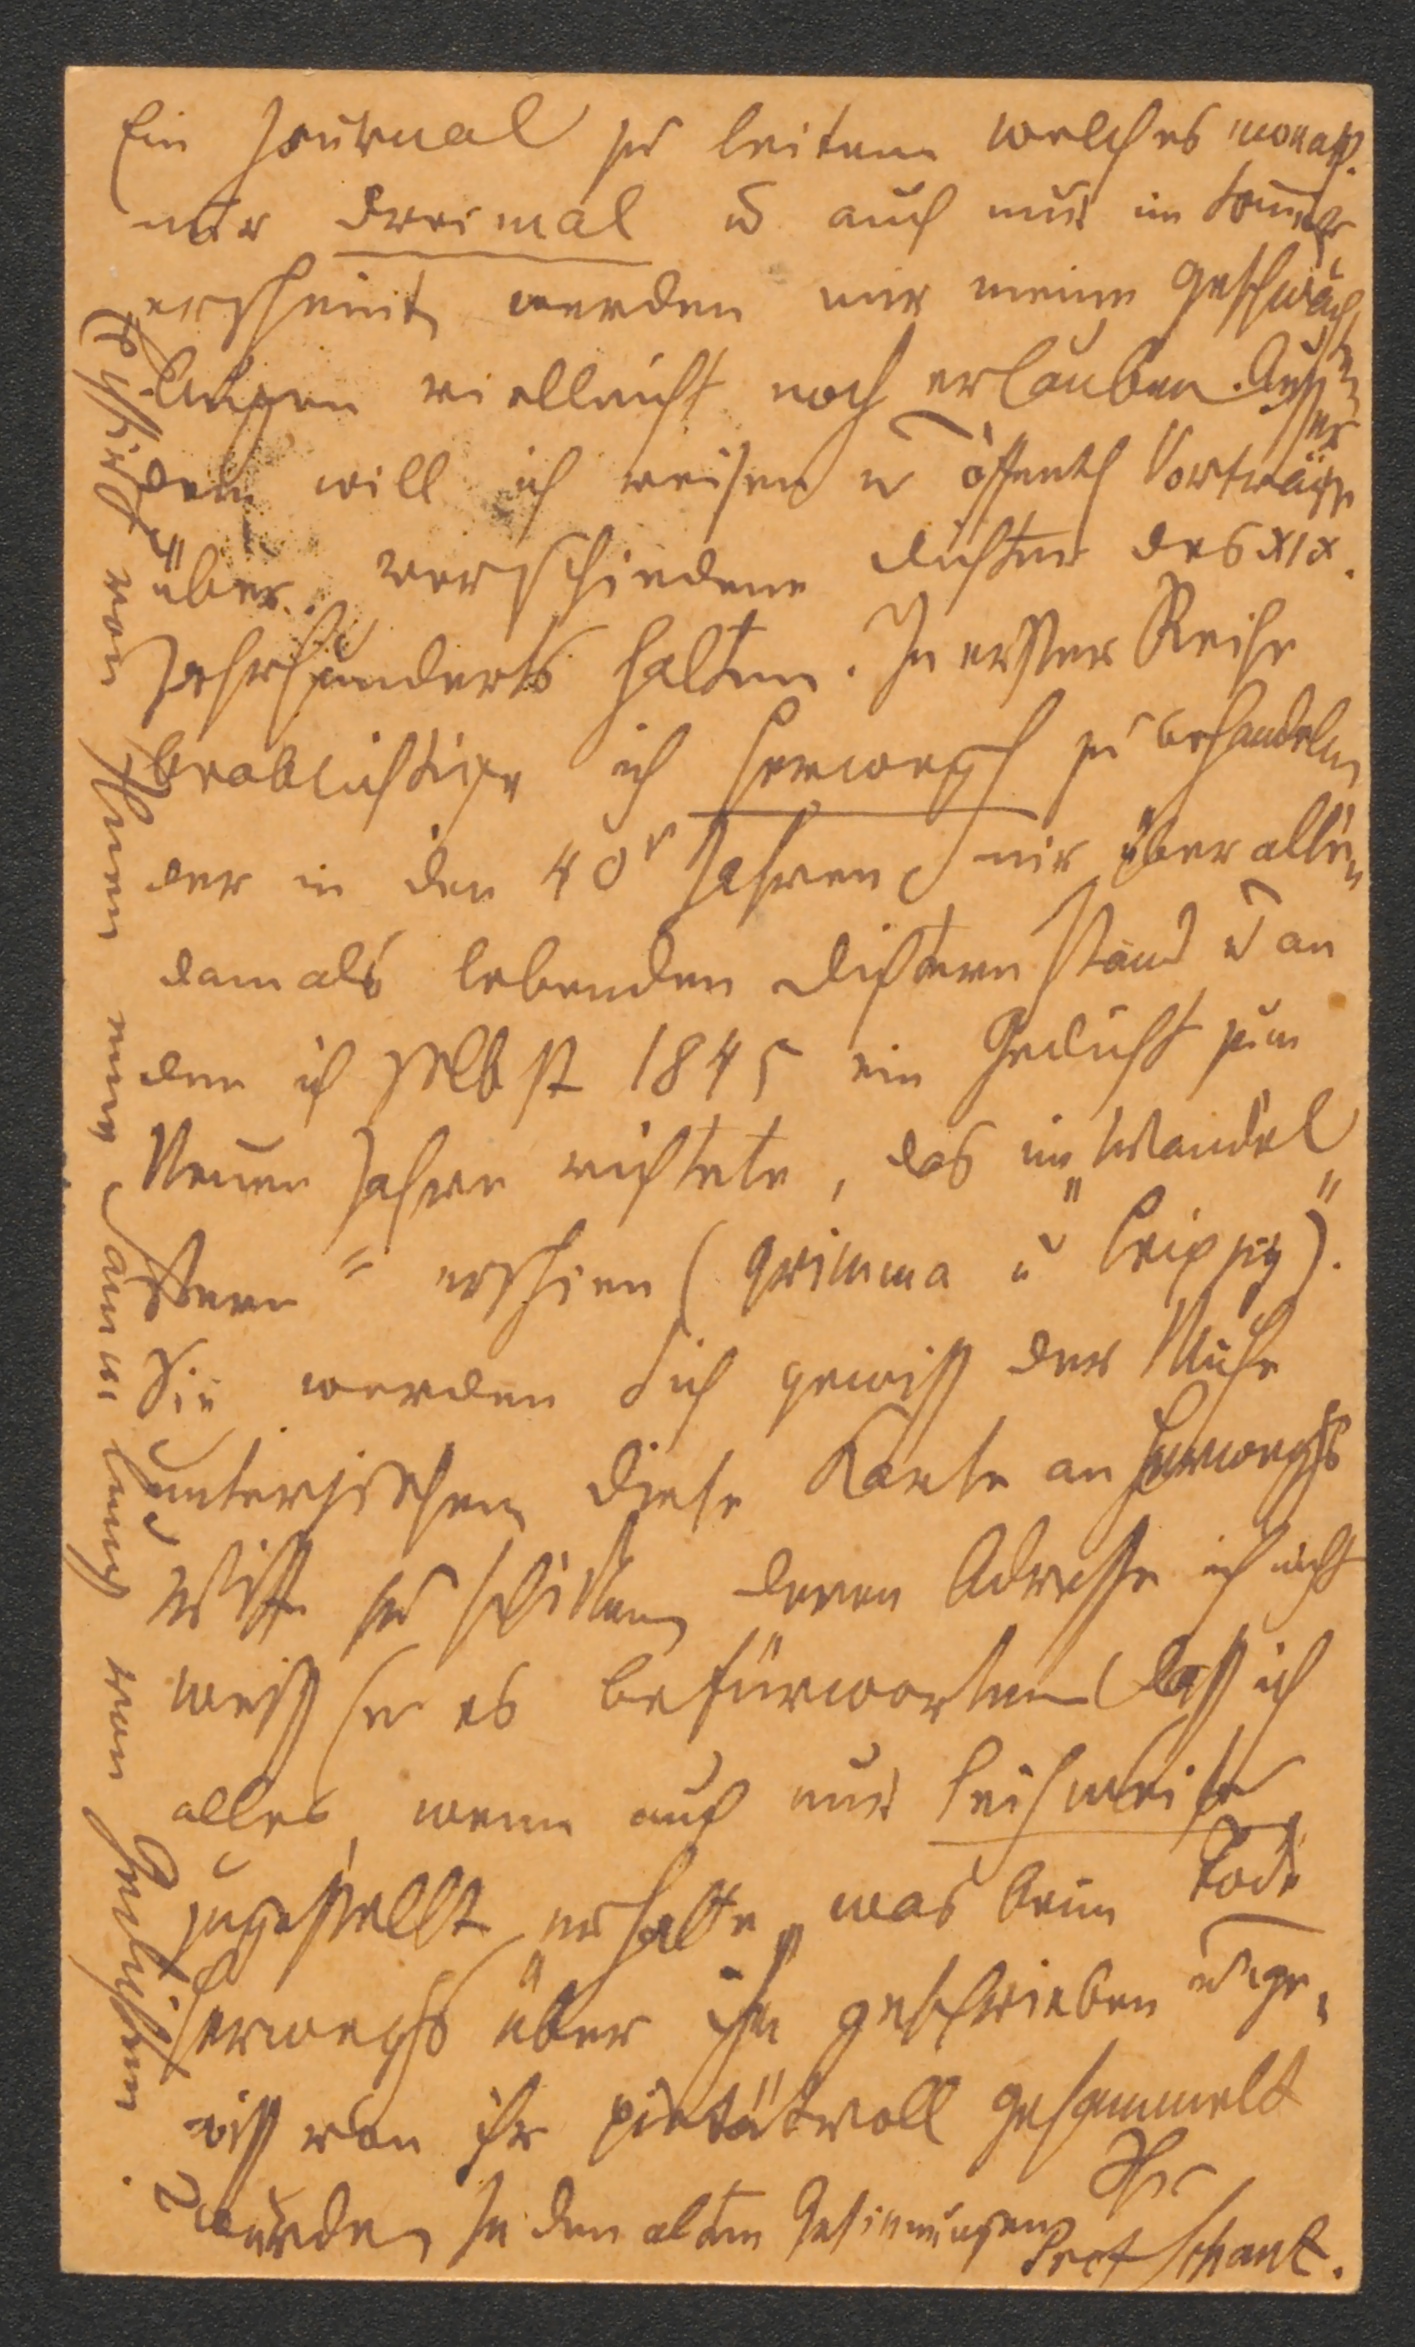 Ein Journal zu leiten welches monatl.
nur dreimal u auch nur im Sommer
erscheint werden mir meine geschwächten
Augen vielleicht noch erlauben. Ausser
dem will ich reisen u öffentl Vorträge
über verschiedene Dichter des XIX.
Jahrhunderts halten. In erster Reihe
beabsichtige ich Herwegh zu behandeln
der in den 40r Jahren mir über allen
damals lebenden Dichtern stand u an
den ich selbst 1845 ein Gedicht zum
Neuen Jahre richtete, das im „Wandel
stern" erschien (Grimma u Leipzig).
Sie werden Sich gewiss der Mühe
unterziehen diese Karte an Herweghs
Wittwe zu schicken deren Adresse ich nicht
weiss u es befürworten dass ich
alles, wenn auch nur leihweise
zugestellt erhalte, was beim Tode
Herweghs über ihn geschrieben u ge-
wiss von ihr pietätvoll gesammelt
wurde. In den alten Gesinnungen Ihr
Prof Schanz.
von Ihnen eine Sammlung von Gedichten.